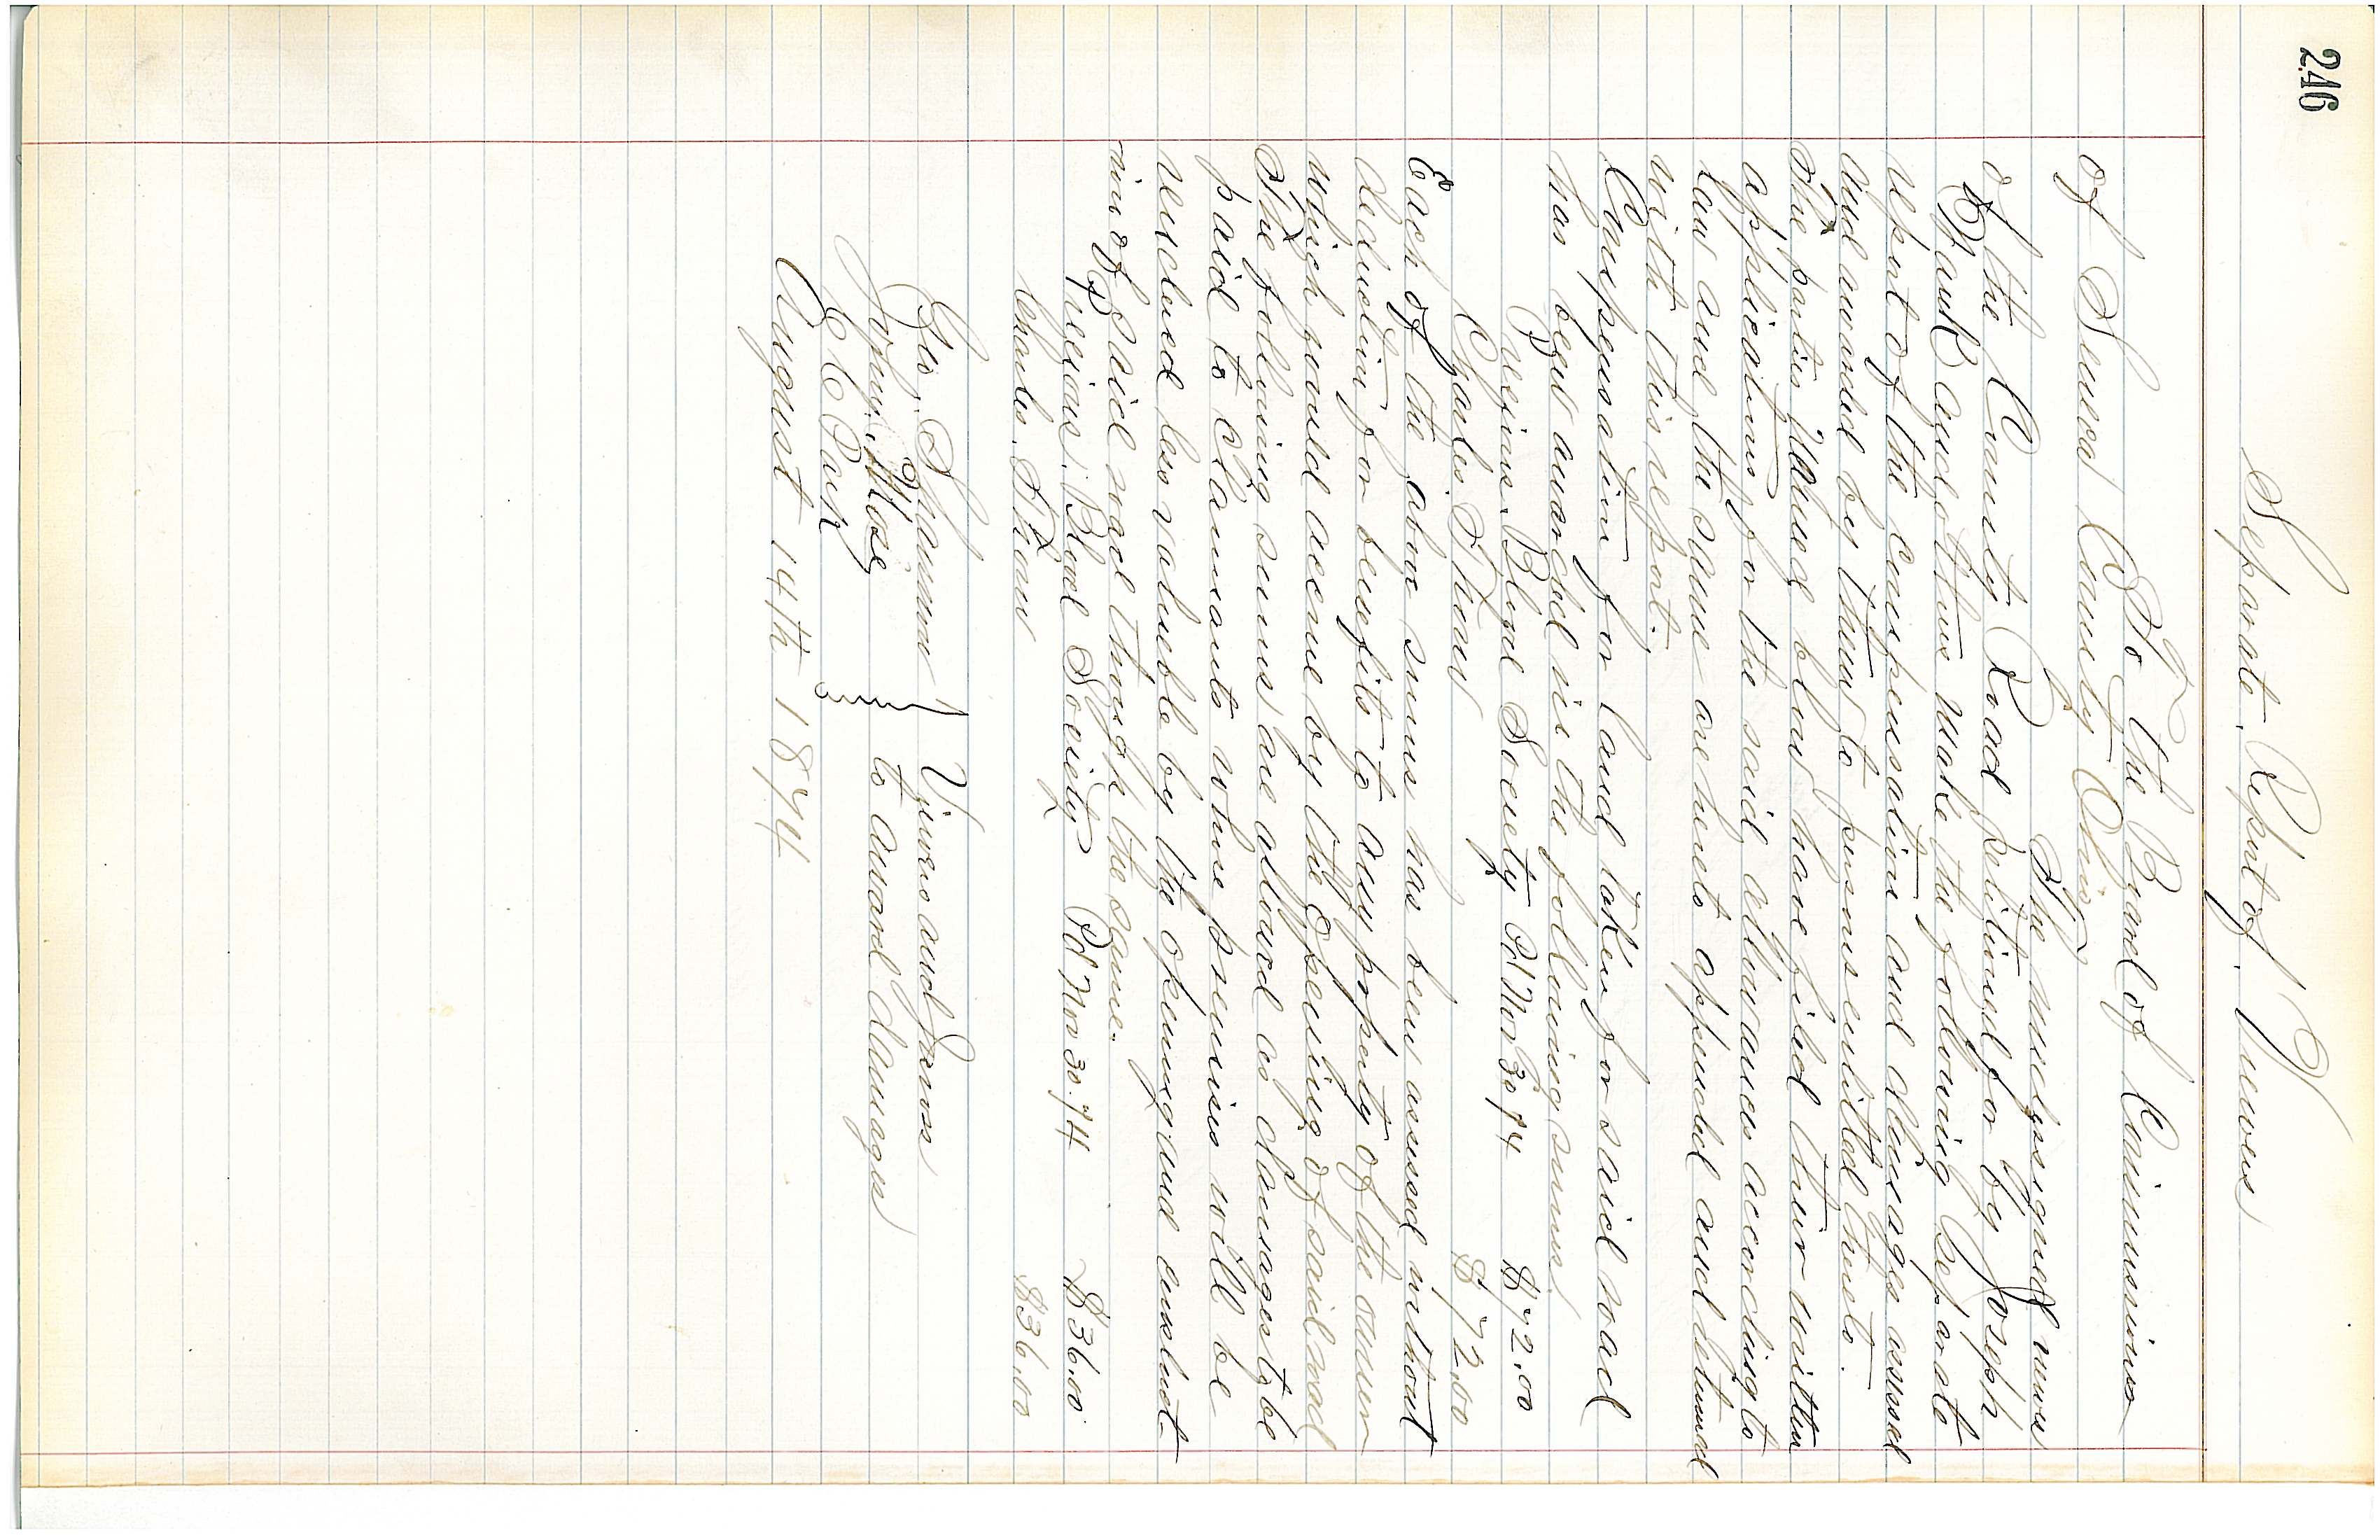 246
Separate. Report of. Viewers
To the Board of Commissioners
of Seneca County Ohio
The undersigned viewers
of the County Road petitioned for by Joseph
and others make the following Separate
report of the compensation and damages assessed
and awarded by them to persons entitled thereto.
The parties named below have filed their written
applications for the said allowances according to
Law and the same are hereto appended and returned
with this report.
Compensation for land taken for said road
has been awarded in the following sums
Blood Society Pd Nov 30, 74 $72.00
Charles. $72.00
Each of the above sums has been assessed without
deduction for benefits to any property of the owner
which would accrue by the opening of said road
The following sums are allowed as damages to be
paid to claimants whose premises will be
rendered less valueble by the opening and construct-
ion of said road through the same.
Blood Society Pd Nov 30. 74 $36.00
Charles. $36.00
Geo. Shannon } Viewers and Jurors
John. to award damages
August 14th 1874